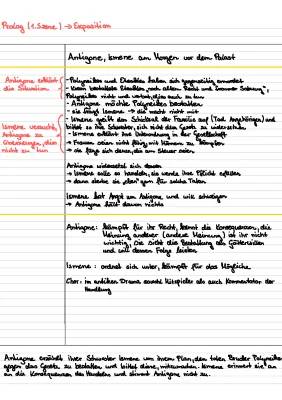 Prolog (1. Szene) → Exposition
Antigone, Ismene am Morgen vor dem Palast
Antigone erklärt
die Situation
- Polyneikes und Eteokles haben sich gegenseitig ermordet
- Kreon bestattete Eteokles „nach altem Recht und
Polyneikes nicht und verbot, dies auch zu tun
- Antigone möchte Polyneikes bestatten
- sie fragt Ismene → die macht nicht mit
Ismene versucht,
Antigone zu
überzeugen, dies
nicht zu tun
- Ismene greift den Schicksal der Familie auf (Tod Angehöriger) und
bittet so ihre Schwester, sich nicht dem Gesetz zu widersetzen
- Ismene erläutert ihre Unterordnung in der Gesellschaft
→ Frauen seien nicht fähig mit Männern zu kämpfen
→ sie füge sich denen, die am Steuer seien
Antigone widersetzt sich davon
→ Ismene solle so handeln, sie werde ihre Pflicht erfüllen
→ dann sterbe sie gern für solche Taten
Ismene hat Angst um Antigone und wie schweigen
→ Antigone hält davon nichts
Antigone: kämpft für ihr Recht, kennt die Konsequenzen, die
Meinung anderer (andere Meinung) ist ihr nicht
wichtig, sie sieht die Bestattung als Götterwillen
und will diesen Folge leisten
Ismene: ordnet sich unter, kämpft für das Mögliche
Chor: im antiken Drama sowohl Mitspieler als auch Kommentator der
Handlung
Antigone erzählt ihrer Schwester Ismene von ihrem Plan, den toten Bruder Polyneikes
gegen das Gesetz zu bestatten und bittet diese, mitzumachen. Ismene erinnert sie an
an die Konsequenzen des Handelns und stimmt Antigone nicht zu.